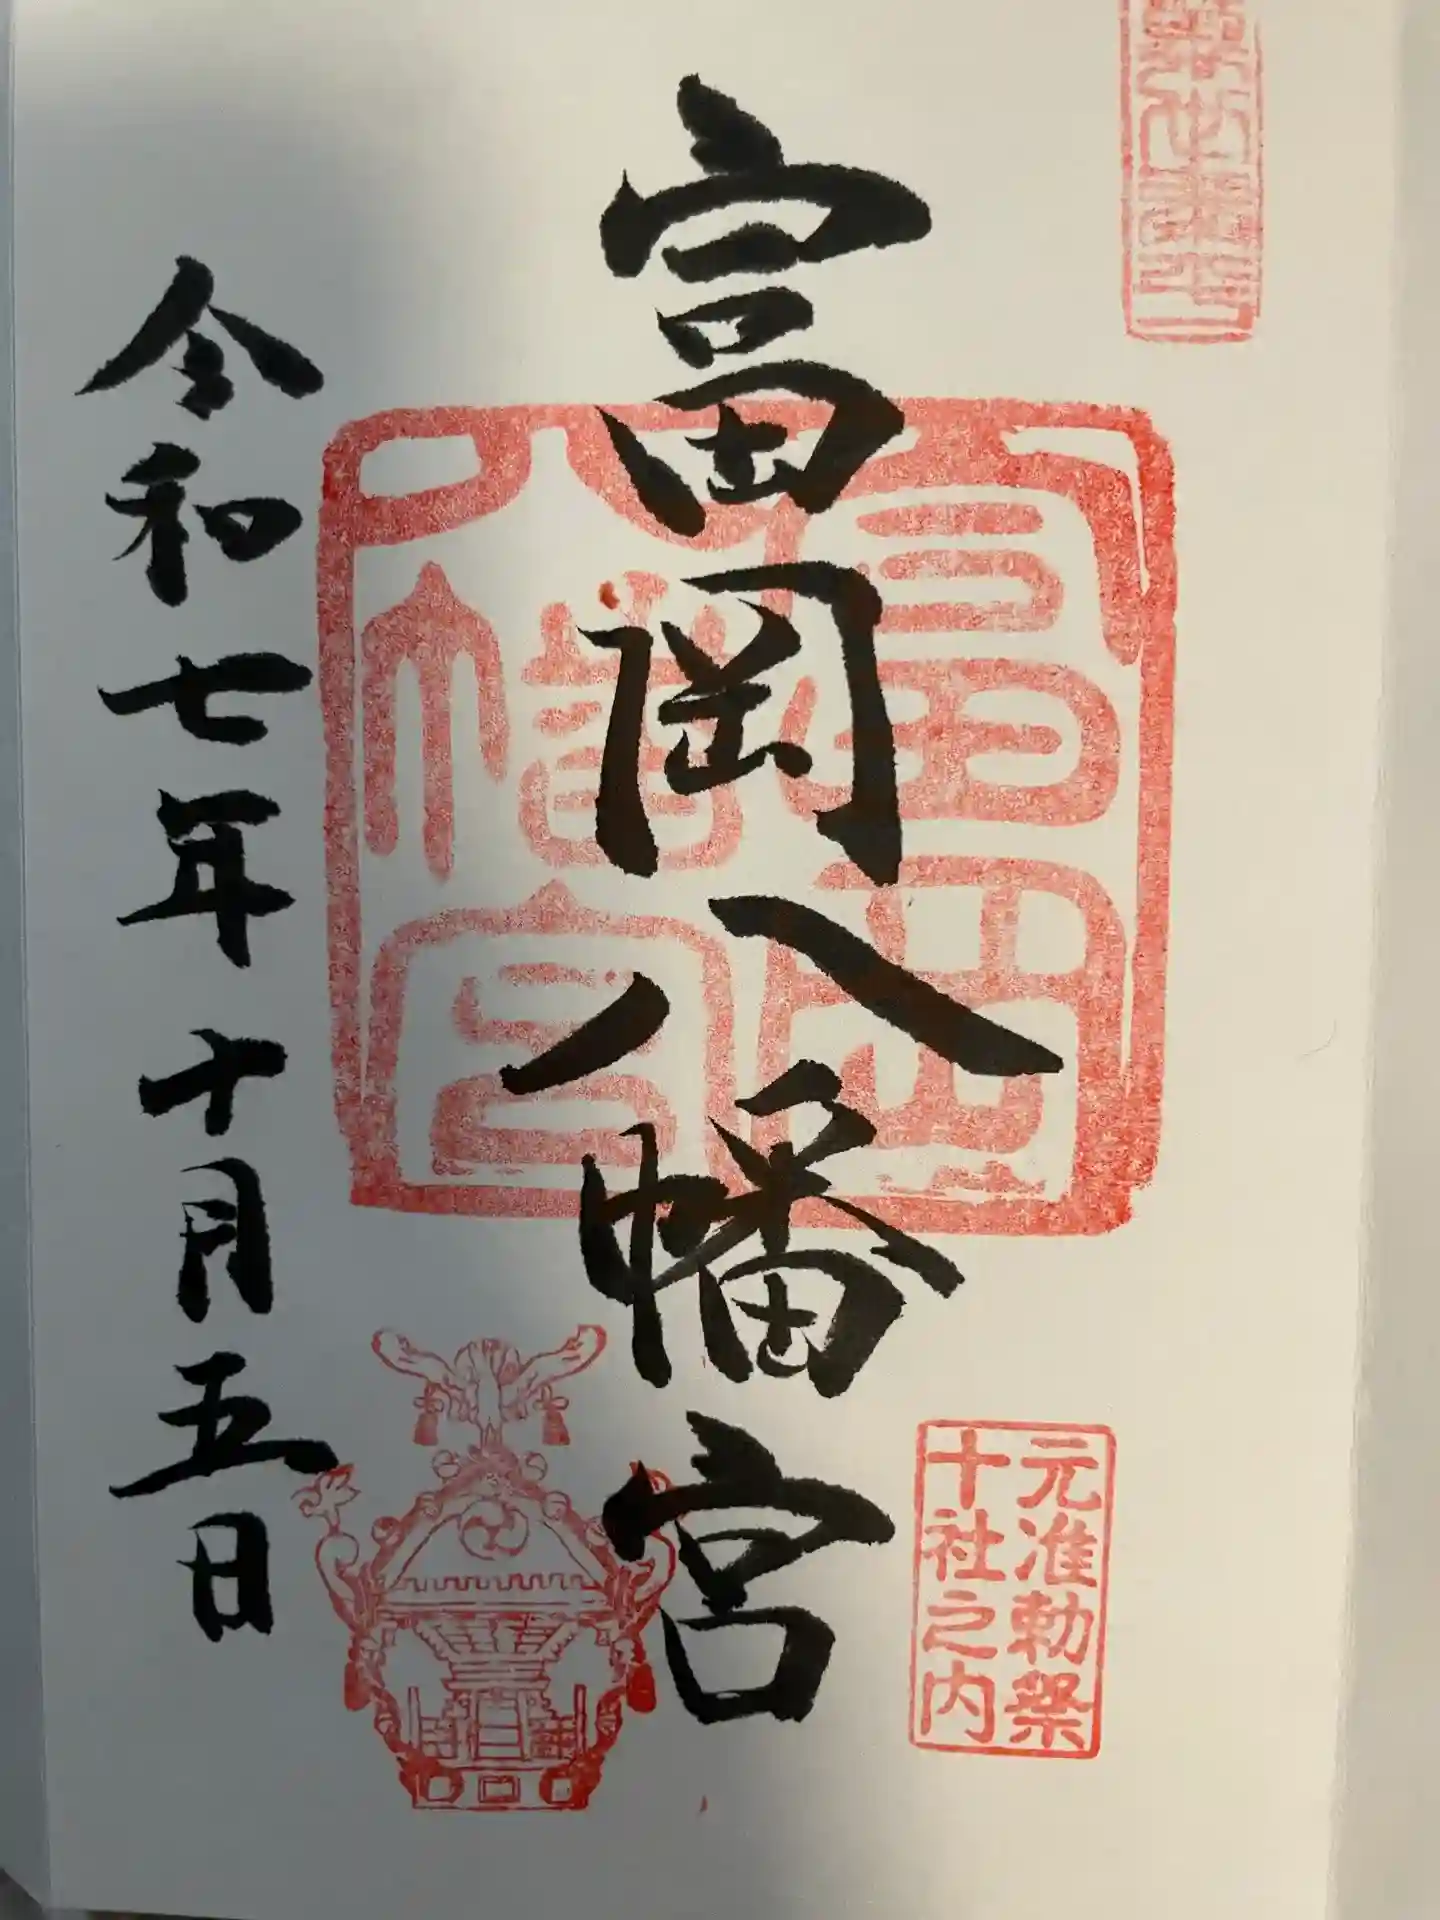 富岡八幡宮
元准勅祭
十社之内
令和七年十月五日
富岡
八幡宮